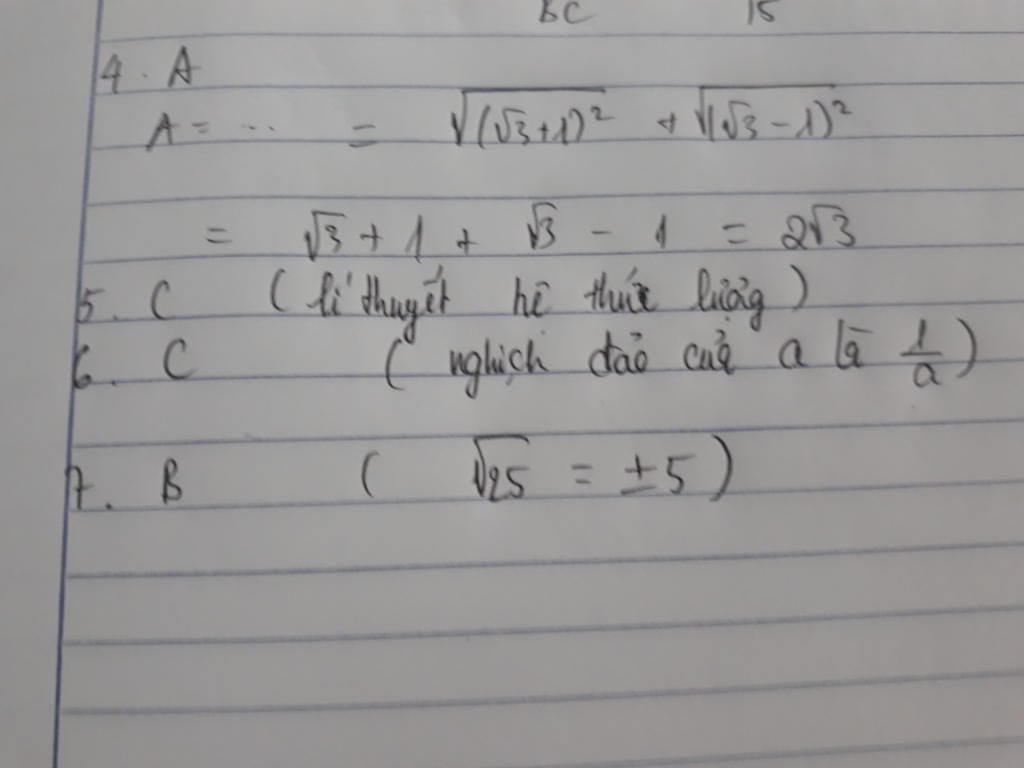 BC 15
4. A
A = ... = √(√3+1)² + √(√3-1)²
= √3 + 1 + √3 - 1 = 2√3
5. C (lí thuyết hệ thức lượng)
6. C (nghịch đảo của a là 1/a)
7. B (√25 = ±5)